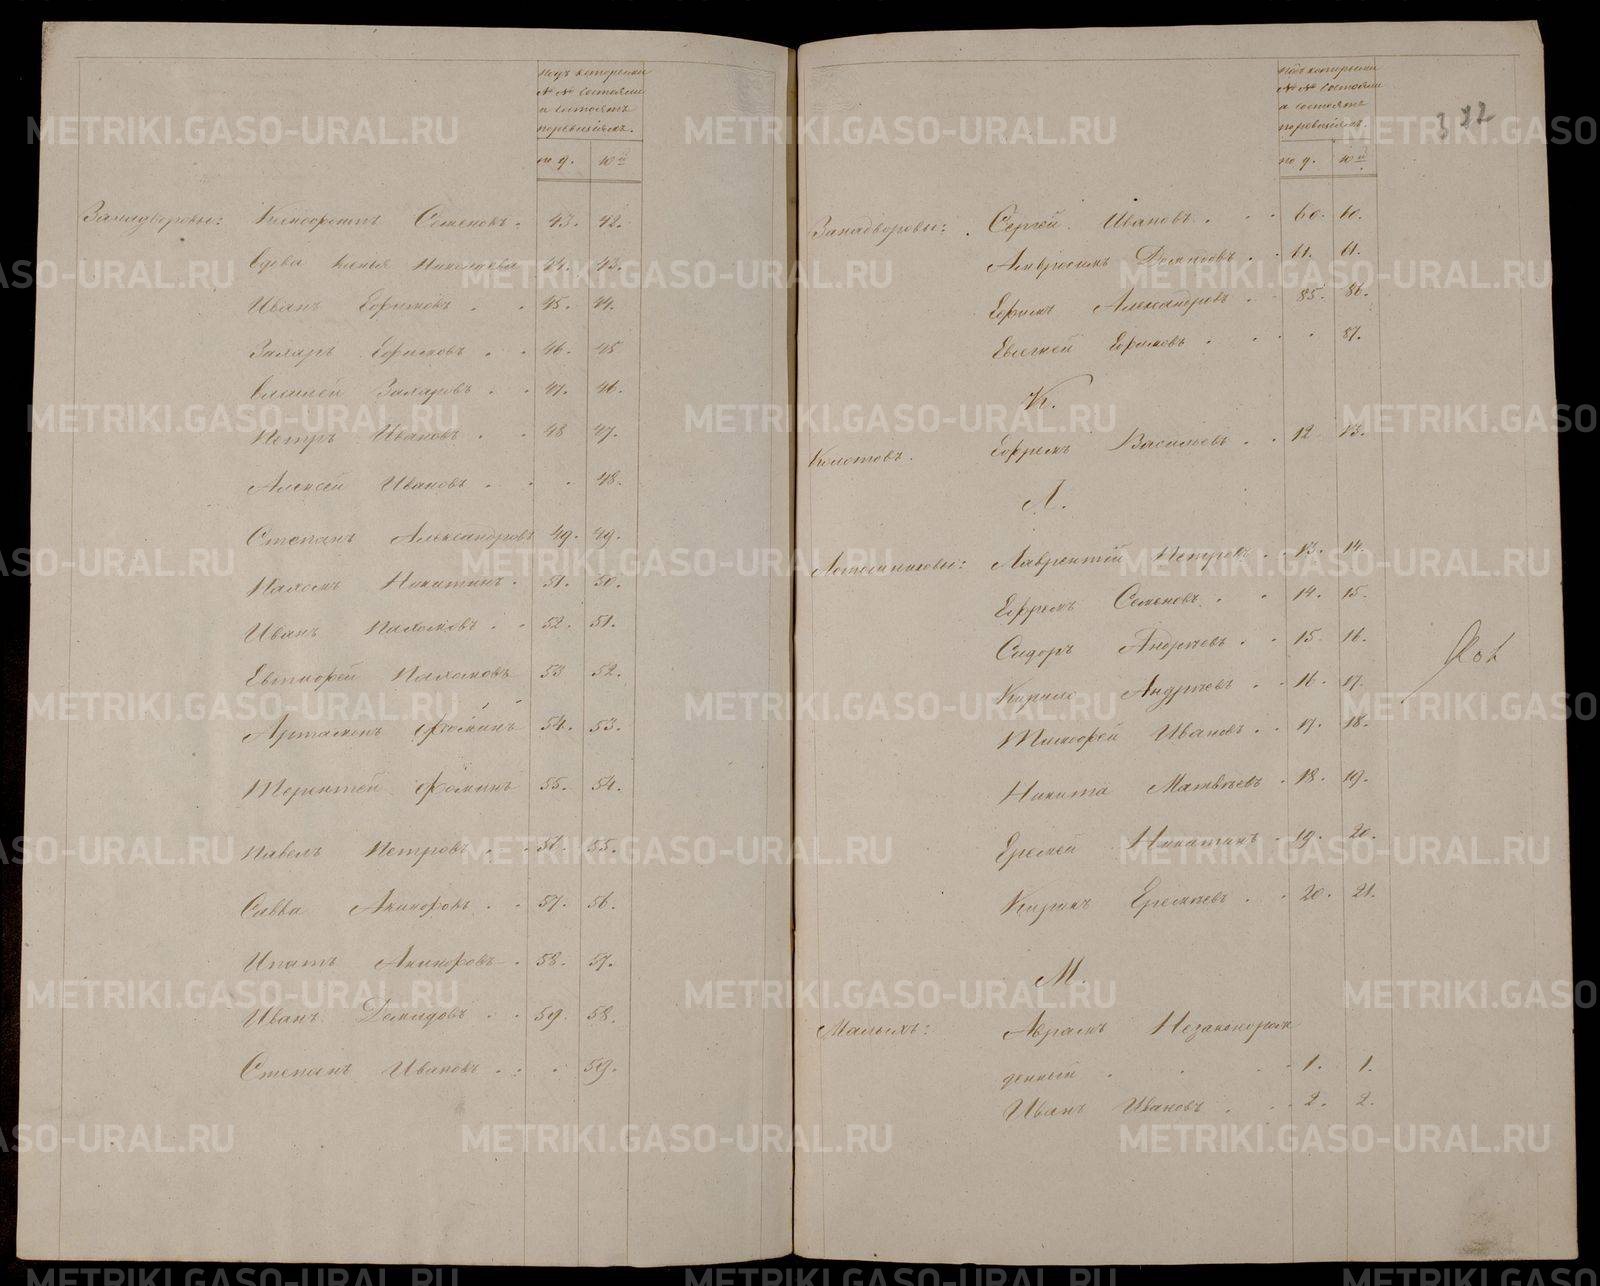 Подъ которыми
№ № состояли
и состоятъ
по ревизіямъ.
по 9. 10й
Западворовы: Ксенофонтъ Семеновъ. 43. 42.
Вдова Николаева 44. 43.
Иванъ Ефимовъ . . 45. 44.
Захаръ Ефимовъ . . 46. 45
Елисей Захаровъ . . 47. 46.
Петръ Ивановъ . . 48 47.
Алексей Ивановъ . . . 48.
Степанъ Александровъ 49. 49.
Пахомъ Никитинъ . 51. 50.
Иванъ Пахомовъ . . 52. 51.
Евтифей Пахомовъ 53 52.
Артамонъ Фоминъ 54. 53.
Терентей Фоминъ 55. 54.
Павелъ Петровъ . . 56. 55.
Савва Никифоровъ . . 57. 56.
Ипатъ Никифоровъ . 58. 57.
Иванъ Демидовъ . . 59. 58.
Степанъ Ивановъ . . . 59.
322
Подъ которыми
№ № состояли
и состоятъ
по ревизіямъ.
по 9. 10й
Западворовы: Сергей Ивановъ . . . 60. 60.
Амвросимъ Демидовъ . . 61. 61.
Ефимъ Александровъ . . 85. 86.
Евсевей Ефимовъ . . . . 87.
К.
Колотовъ. Ефремъ Васильевъ . . 12 13.
Л.
Лаврентей Петровъ . . 13. 14.
Ефремъ Семеновъ . . 14. 15.
Сидоръ Андреевъ . . 15 16.
Кирило Андреевъ . . 16. 17.
Тимофей Ивановъ . . 17. 18.
Никита Матвеевъ . 18. 19.
Еремей Никитинъ . 19. 20.
Киримъ Еремеевъ . . 20. 21.
М.
Малыхъ: Аврамъ Незаконорож
денный . . . . 1. 1.
Иванъ Ивановъ . . . 2. 2.
METRIKI.GASO-URAL.RU